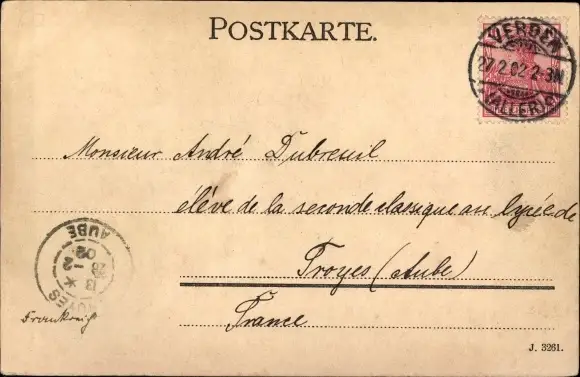 POSTKARTE.
VERDEN
27.2.02.2-3N
(ALLER)
Monsieur André Dubreuil
élève de la seconde classique au lycée de
Troyes (Aube)
France
AUBE
Frankreich
J. 3261.